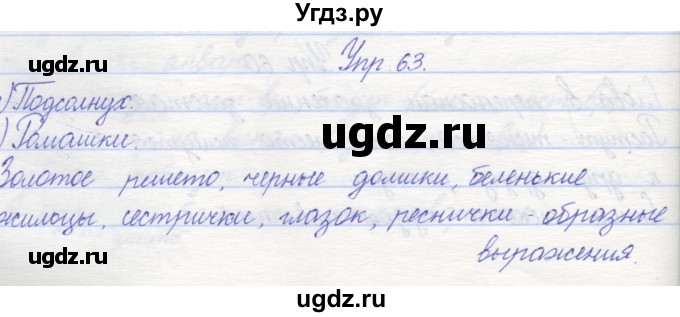 Угдз.ру
ugdz.ru ugdz.ru
Упр 63.
) Подсолнух.
ugdz.ru
) Ромашки.
Золотое решето, черные домики, беленькие
жильцы, сестрички, глазок, реснички - образные
ugdz.ru ugdz.ru
выражения.
ugdz.ru